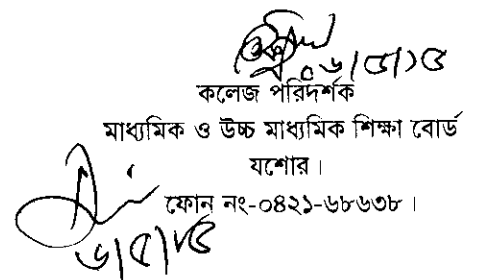 ০৬/৫/১৫
কলেজ পরিদর্শক
মাধ্যমিক ও উচ্চ মাধ্যমিক শিক্ষা বোর্ড
যশোর।
ফোন নং-০৪২১-৬৮৬৩৮।
৬/৫/১৫